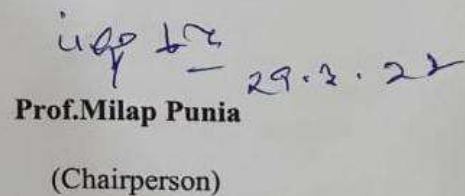 29.3.22
Prof.Milap Punia
(Chairperson)